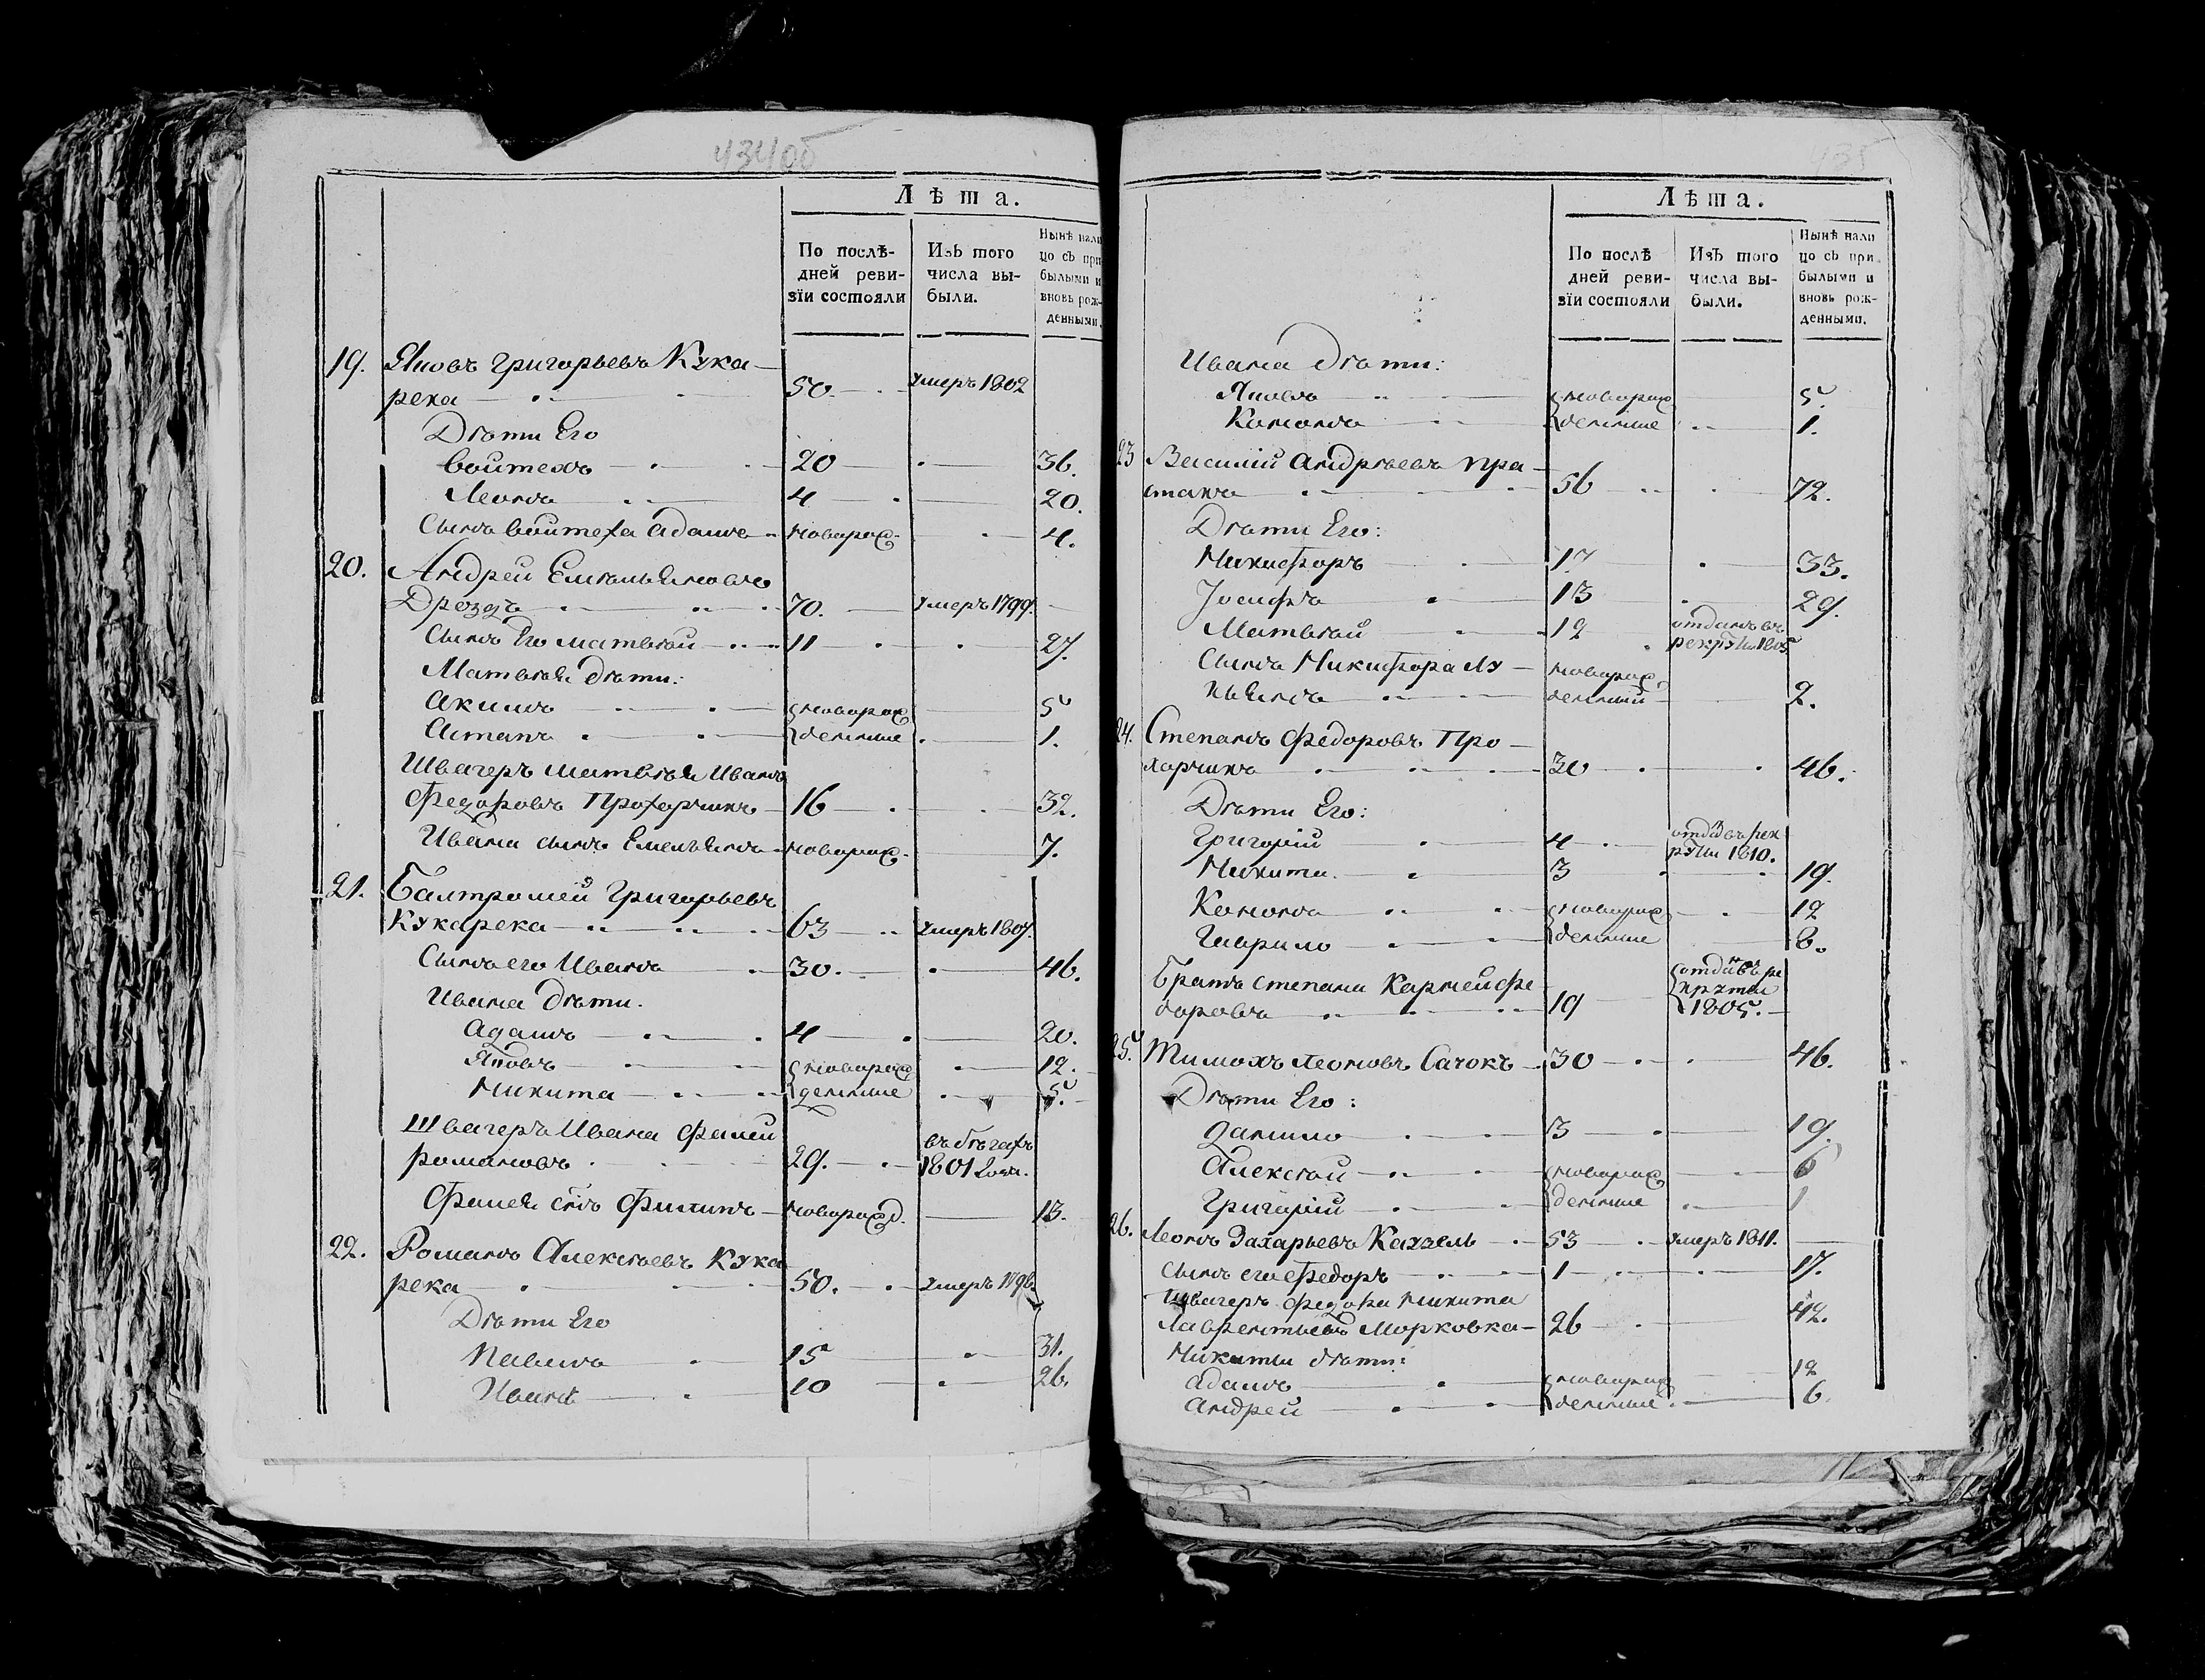 434об
Лѣта.
По послѣ-
дней реви-
зїи состояли
Изъ того
числа вы-
были.
Нынѣ нали
цо съ при
былыми и
вновь рож-
денными.
19. Яковъ Григорьевъ Кука-
река 50. умеръ 1802
Дѣти Его
Войтехъ 20 36.
Леонъ 4 20.
Сынъ Войтеха Адамъ новорож. 4.
20. Андрей Емельяновъ
Дроздъ 70. умеръ 1799.
Сынъ Его Матвѣй 11 27.
Матвѣя дѣти:
Акимъ новорож 5
Астапъ денные 1.
Швагеръ Матвѣя Иванъ
Федоровъ Прохорчикъ 16 32.
Ивана сынъ Емельянъ новорож. 7.
21. Балтромей Григорьевъ
Кукарека 63 умеръ 1807.
Сынъ его Иванъ 30. 46.
Ивана дѣти.
Адамъ 4 20.
Яковъ новорож 12.
Микита денные 5.
Швагеръ Ивана Фалей
Романовъ 29. въ бѣгахъ
1801 года.
Фалея сынъ Филипъ новорожд. 13.
22. Романъ Алексѣевъ Кука
река 50. умеръ 1796.
Дѣти Его
Павилъ 15 31.
Иванъ 10 26.
435
Лѣта.
По послѣ
дней реви-
зїи состояли
Изъ того
числа вы-
были.
Нынѣ нали
цо съ при
былыми и
вновь рож-
денными.
Ивана дѣти:
Яковъ новорож 5.
Кононъ денные 1.
23 Василий Андрѣевъ Пра-
такъ 56 72.
Дѣти Его:
Микифоръ 17 33.
Іосифъ 13 29.
Матвѣй 12 отданъ въ
рекруты 1805
Сынъ Микифора Лу- новорож
кьянъ денный 2.
24. Степанъ Федоровъ Про-
хорчикъ 30 46.
Дѣти Его:
Григорій 4 отда въ рек
руты 1810.
Микита 3 19.
Кононъ новорож 12
Гаврило денные 8.
Братъ Степана Карней Фе
доровъ 19 отданъ въ ре
круты
1805.
25. Тимохъ Леоновъ Сачокъ 30 46.
Дѣти Его:
Данило 3 19.
Алексѣй новорож 6
Григорій денные 1
26. Леонъ Захарьевъ 53 умеръ 1811.
Сынъ его Федоръ 1 17.
Швагеръ Федора Микита
Лаврентьевъ Морковка 26 42.
Микиты дѣти:
Адамъ новорож 12
Андрей денные 6.